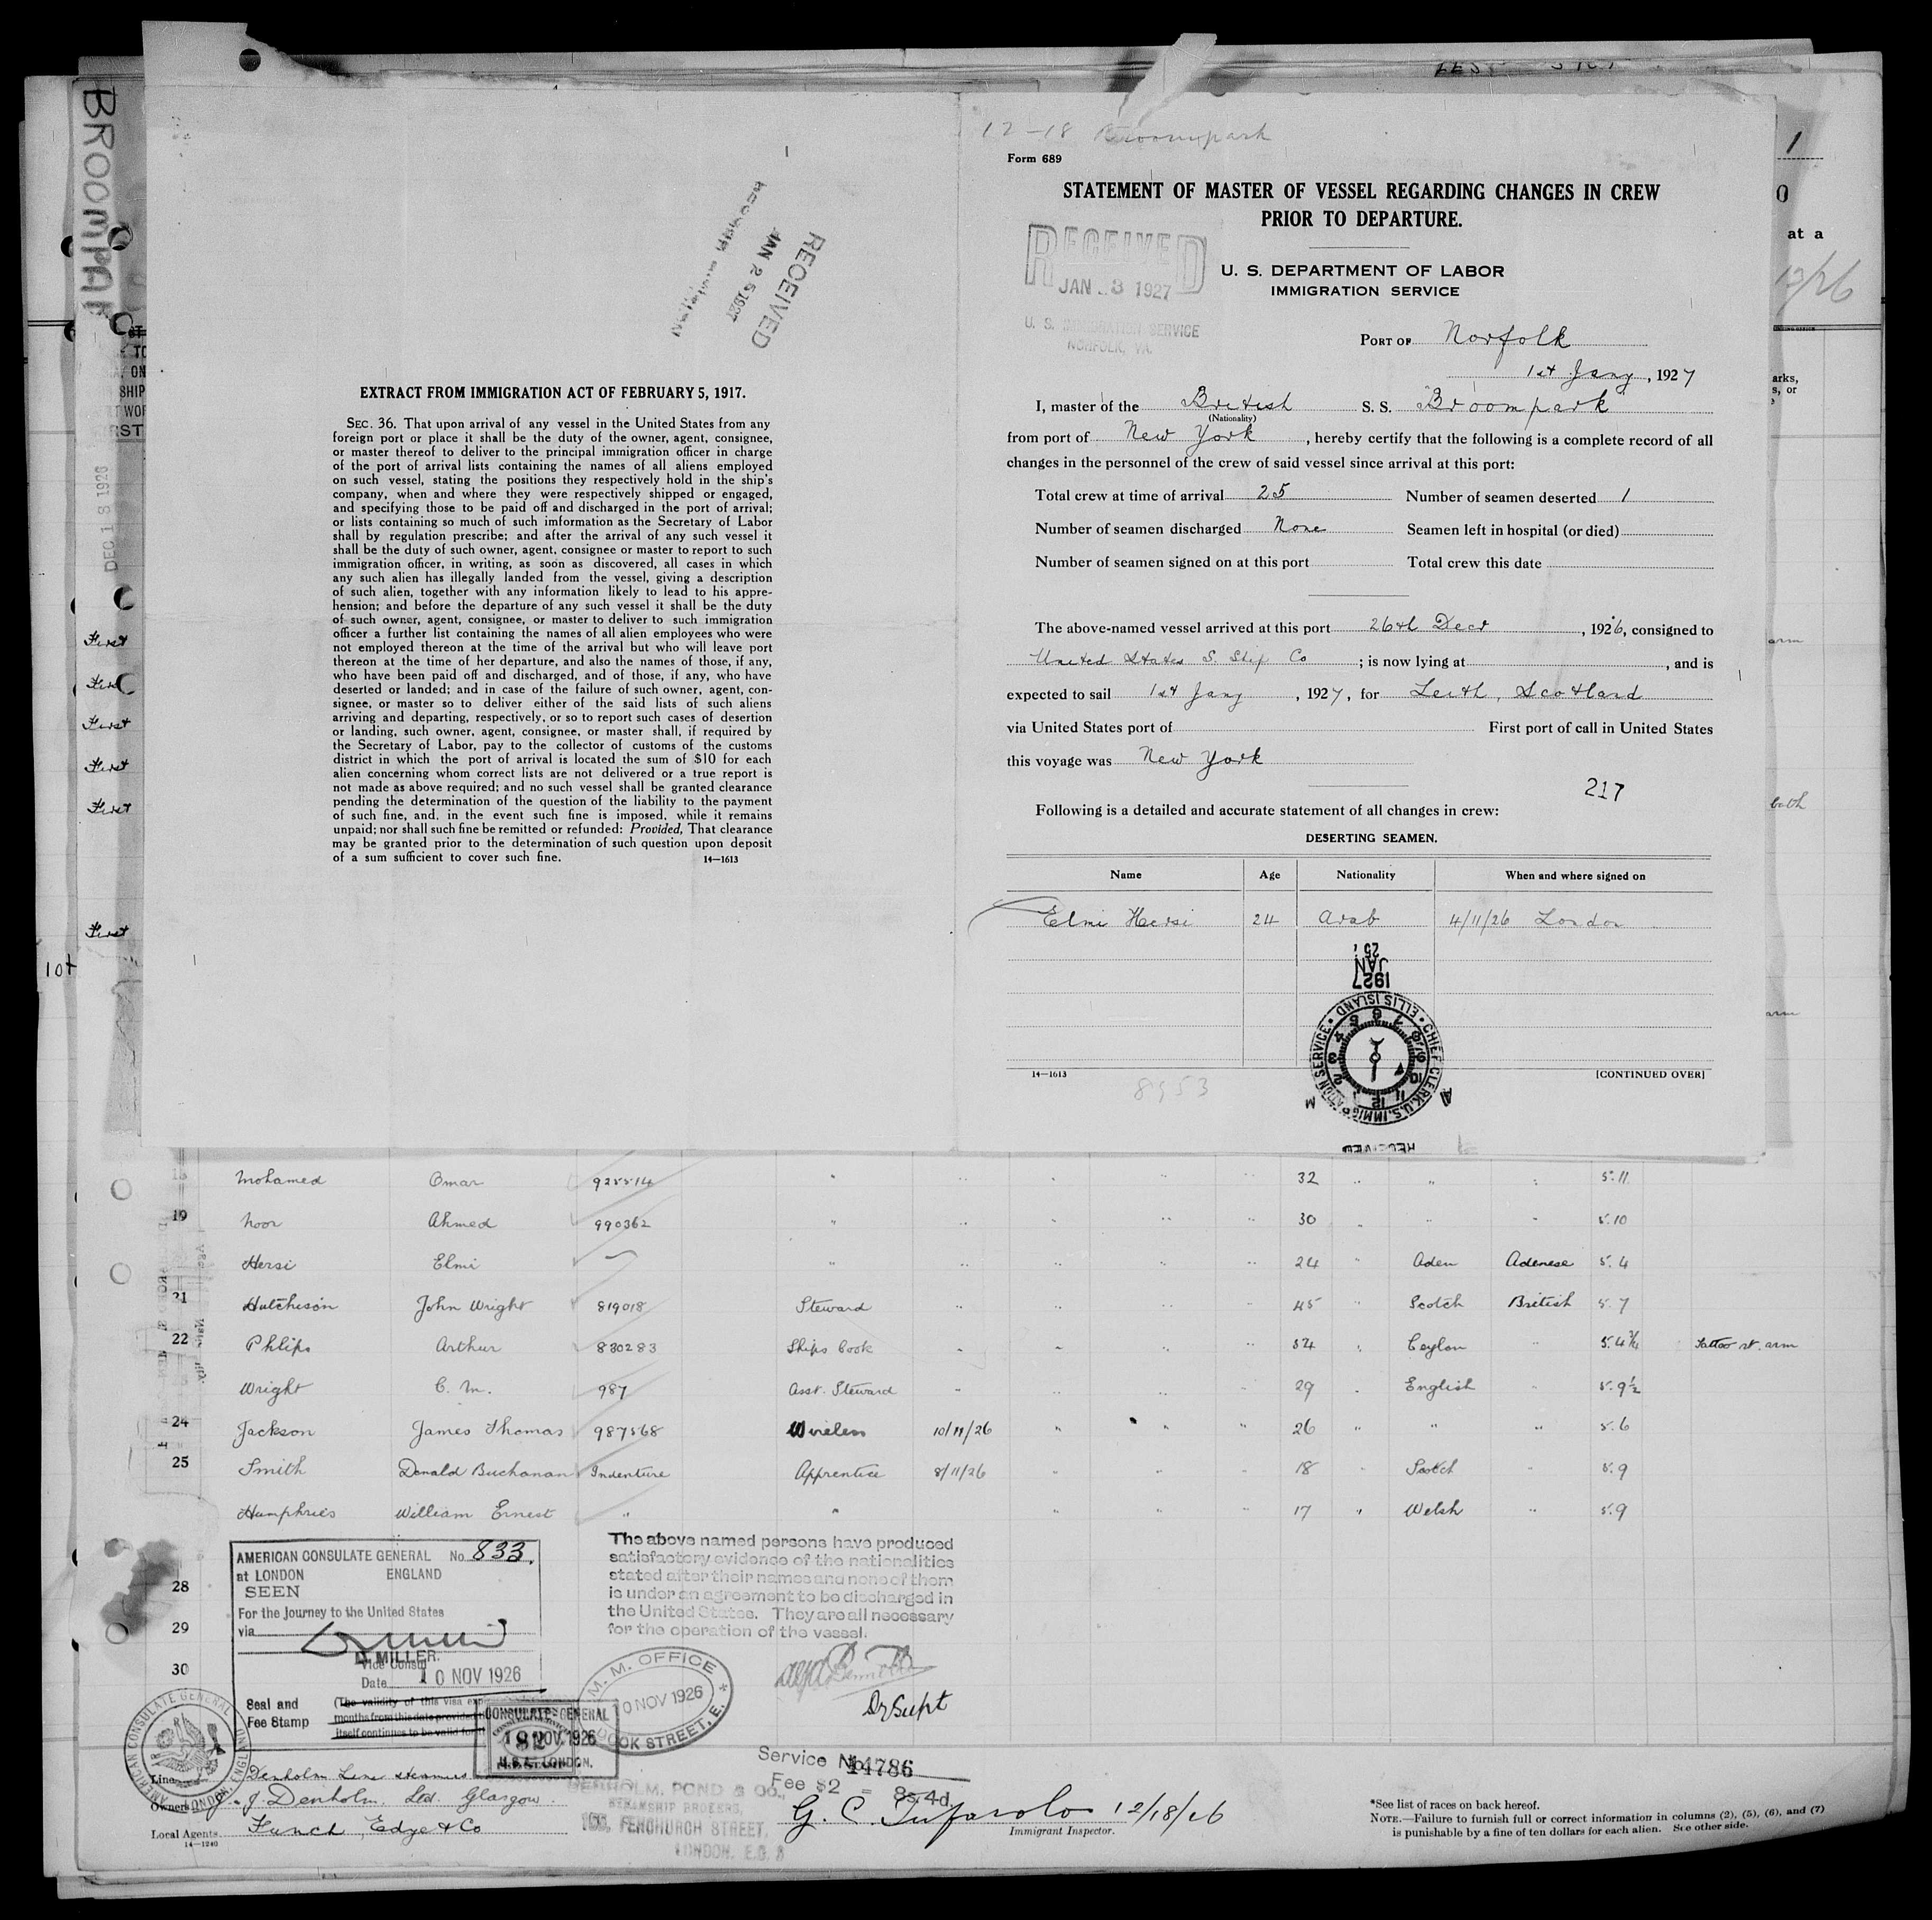 BROOMPARK
DEC 18 1926
First
First
First
First
First
First
RECEIVED
JAN 25 1927
EXTRACT FROM IMMIGRATION ACT OF FEBRUARY 5, 1917.
SEC. 36. That upon arrival of any vessel in the United States from any
foreign port or place it shall be the duty of the owner, agent, consignee,
or master thereof to deliver to the principal immigration officer in charge
of the port of arrival lists containing the names of all aliens employed
on such vessel, stating the positions they respectively hold in the ship's
company, when and where they were respectively shipped or engaged,
and specifying those to be paid off and discharged in the port of arrival;
or lists containing so much of such imformation as the Secretary of Labor
shall by regulation prescribe; and after the arrival of any such vessel it
shall be the duty of such owner, agent, consignee or master to report to such
immigration officer, in writing, as soon as discovered, all cases in which
any such alien has illegally landed from the vessel, giving a description
of such alien, together with any information likely to lead to his appre-
hension; and before the departure of any such vessel it shall be the duty
of such owner, agent, consignee, or master to deliver to such immigration
officer a further list containing the names of all alien employees who were
not employed thereon at the time of the arrival but who will leave port
thereon at the time of her departure, and also the names of those, if any,
who have been paid off and discharged, and of those, if any, who have
deserted or landed; and in case of the failure of such owner, agent, con-
signee, or master so to deliver either of the said lists of such aliens
arriving and departing, respectively, or so to report such cases of desertion
or landing, such owner, agent, consignee, or master shall, if required by
the Secretary of Labor, pay to the collector of customs of the customs
district in which the port of arrival is located the sum of $10 for each
alien concerning whom correct lists are not delivered or a true report is
not made as above required; and no such vessel shall be granted clearance
pending the determination of the question of the liability to the payment
of such fine, and, in the event such fine is imposed, while it remains
unpaid; nor shall such fine be remitted or refunded: Provided, That clearance
may be granted prior to the determination of such question upon deposit
of a sum sufficient to cover such fine. 14—1613
12-18 Broompark
Form 689
STATEMENT OF MASTER OF VESSEL REGARDING CHANGES IN CREW
PRIOR TO DEPARTURE.
RECEIVED
JAN 3 1927
U. S. IMMIGRATION SERVICE
NORFOLK, VA.
U. S. DEPARTMENT OF LABOR
IMMIGRATION SERVICE
PORT OF Norfolk
1st Jany, 1927
I, master of the British S. S. "Broompark"
(Nationality)
from port of New York, hereby certify that the following is a complete record of all
changes in the personnel of the crew of said vessel since arrival at this port:
Total crew at time of arrival 25 Number of seamen deserted 1
Number of seamen discharged None Seamen left in hospital (or died)
Number of seamen signed on at this port Total crew this date
The above-named vessel arrived at this port 26th Decr, 1926, consigned to
United States S. Ship Co; is now lying at, and is
expected to sail 1st Jany, 1927, for Leith, Scotland
via United States port of First port of call in United States
this voyage was New York
217
Following is a detailed and accurate statement of all changes in crew:
DESERTING SEAMEN.
Name Age Nationality When and where signed on
Elmi Hersi 24 Arab 4/11/26 London
1927
JAN 25
CHIEF CLERK, U.S. IMMIGRATION SERVICE • ELLIS ISLAND •
RECEIVED
14—1613 [CONTINUED OVER]
8953
1
0
at a
12/26
arks,
s, or
arm
both
arm
Mohamed Omar 925514 " 32 " 5.11
19 Noor Ahmed 990362 " 30 " 5.10
Hersi Elmi — " 24 " Aden Adenese 5.4
21 Hutcheson John Wright 819018 Steward " 45 " Scotch British 5.7
22 Phlips Arthur 830283 Ships Cook " 54 " Ceylon " 5.4¾ Tattoo rt. arm
Wright C. M. 987 Asst. Steward " 29 " English " 5.9½
24 Jackson James Thomas 987568 Wireless 10/11/26 " 26 " " " 5.6
25 Smith Donald Buchanan Indenture Apprentice 8/11/26 " 18 " Scotch " 5.9
Humphries William Ernest " " 17 " Welsh " 5.9
28
29
30
AMERICAN CONSULATE GENERAL No. 833.
at LONDON ENGLAND
SEEN
For the Journey to the United States
via
D. MILLER.
Vice Consul
Date 10 NOV 1926
Seal and
Fee Stamp
(The validity of this visa
months from this date provided
itself continues to be valid for
AMERICAN CONSULATE GENERAL LONDON, ENGLAND
CONSULATE-GENERAL
10 NOV 1926
LONDON.
The above named persons have produced
satisfactory evidence of the nationalities
stated after their names and none of them
is under an agreement to be discharged in
the United States. They are all necessary
for the operation of the vessel.
M. M. OFFICE
10 NOV 1926
DOCK STREET, E.
Dy Supt
Line Denholm Line Steamers
Owners J. Denholm Ltd. Glasgow.
Local Agents Funch, Edye & Co
14—1240
DENHOLM, POND & CO.,
STEAMSHIP BROKERS,
FENCHURCH STREET,
LONDON. E.C. 3
Service No. 14786
Fee $2 = 8s 4d
G. C. Tufarolo 12/18/26
Immigrant Inspector.
*See list of races on back hereof.
NOTE.—Failure to furnish full or correct information in columns (2), (5), (6), and (7)
is punishable by a fine of ten dollars for each alien. See other side.